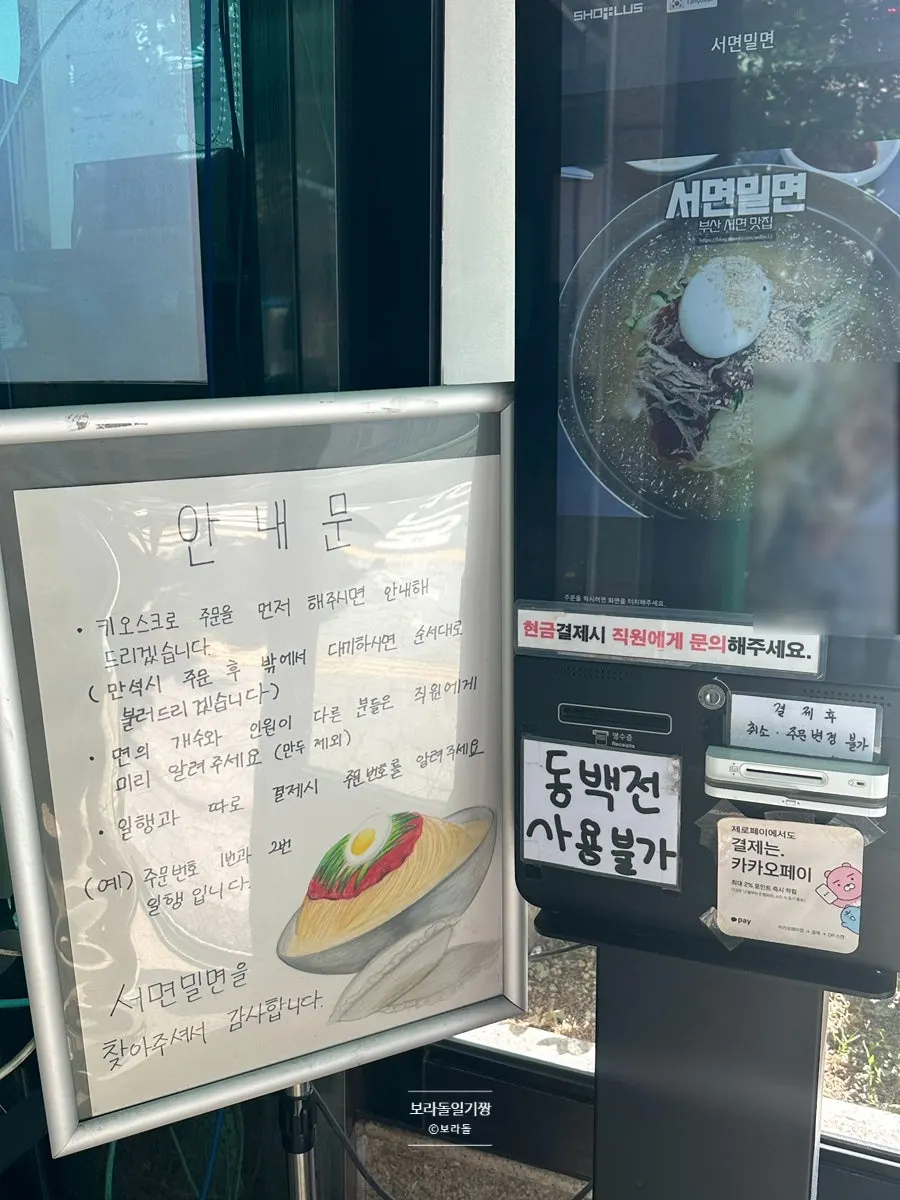 안 내 문
· 키오스크로 주문을 먼저 해주시면 안내해
드리겠습니다.
(만석시 주문 후 밖에서 대기하시면 순서대로
불러드리겠습니다)
· 면의 개수와 인원이 다른 분들은 직원에게
미리 알려주세요 (만두 제외)
· 일행과 따로 결제시 주문번호를 알려주세요
(예) 주문번호 1번과 2번
일행입니다.
서면밀면을
찾아주셔서 감사합니다.
서면밀면
서면밀면
부산 서면 맛집
주문을 하시려면 화면을 터치해주세요.
현금결제시 직원에게 문의해주세요.
영수증
Receipts
결제 후
취소·주문변경 불가
동백전
사용불가
제로페이에서도
결제는.
카카오페이
최대 2% 포인트 즉시 적립
pay
보라돌일기짱
©보라돌